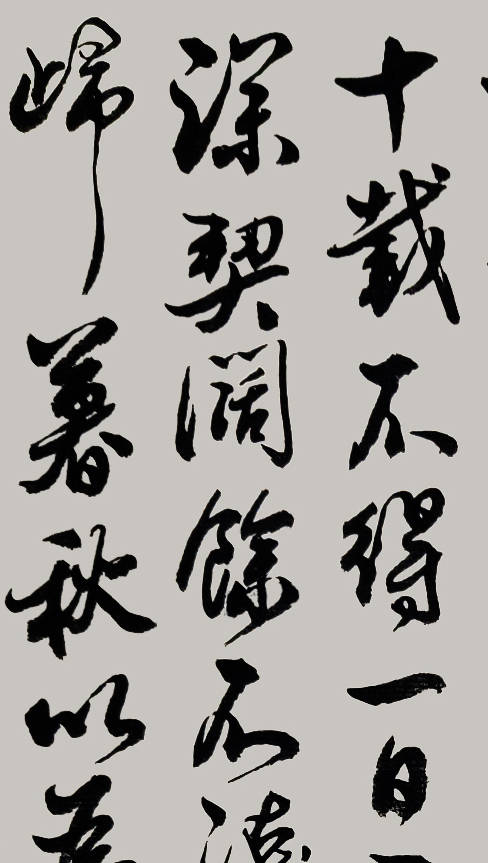 十載不得一日
深契闊餘不
歸暮秋以